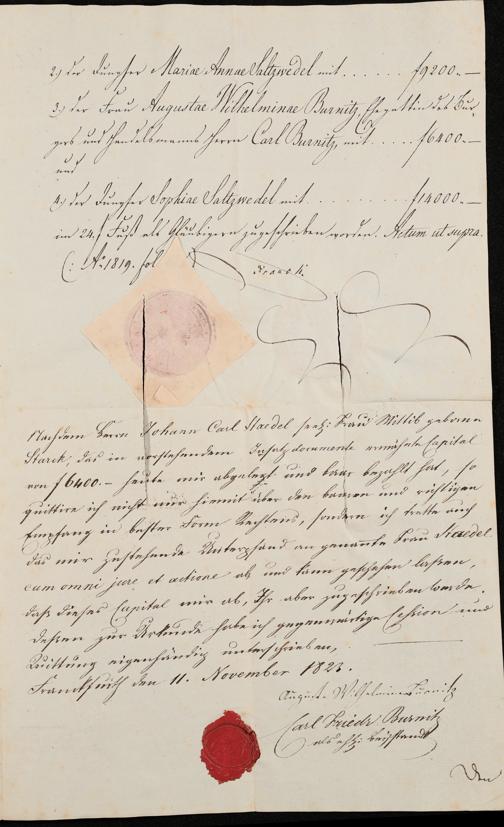 2.) der Jungfer Mariae Annae Saltzwedel mit . . . . . . f9200.—
3.) der Frau Augustae Wilhelminae Burnitz, Ehegattin des Bur-
gers und Handelsmanns Herrn Carl Burnitz, mit . . . . . f6400.—
und
4.) der Jungfer Sophiae Saltzwedel mit . . . . . . . . f14000.—
im 24.f Fuß als Gläubigern zugeschrieben worden. Actum ut supra.
(: No. 1819. fol
Nachdem Herrn Johann Carl Staedel seel: Frau Wittib geborne
Starck, das in vorstehendem Insatzdocumente erwähnte Capital
von f6400.— heute mir abgelegt und baar bezahlt hat, so
quittire ich nicht nur hiemit über den baaren und richtigen
Empfang in bester Form Rechtens, sondern ich trette auch
das mir zustehende Unterpfand an genannte Frau Staedel
cum omni jure et actione ab und kann geschehen lassen,
daß dieses Capital mir ab, Ihr aber zugeschrieben werde,
dessen zur Urkunde habe ich gegenwärtige Cession und
Quittung eigenhändig unterschrieben,
Franckfurth den 11. November 1823.
Augusta Wilhelmina Burnitz
Carl Friedr Burnitz
als ehel: Beystandt
Den